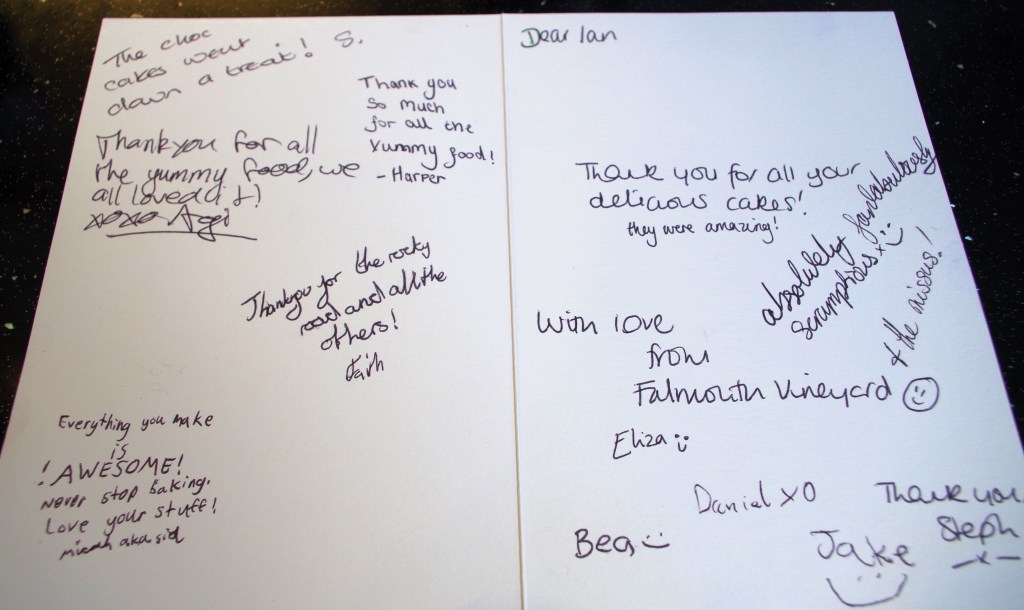 The choc
cakes went
down a treat! S.
Thank you
so much
for all the
yummy food!
- Harper
Thankyou for all
the yummy food, we
all loved it!
xoxo Agi
Thankyou for the rocky
road and all the
others!
Faih
Everything you make
is
! AWESOME!
Never stop baking.
Love your stuff!
micah aka sid
Dear Ian
Thank you for all your
delicious cakes!
they were amazing!
absolutely fandabulously
scrumptious x :)
With love
from
Falmouth Vineyard
& the missus!
Eliza :)
Daniel xo
Thank you
Steph
-x-
Bea :)
Jake